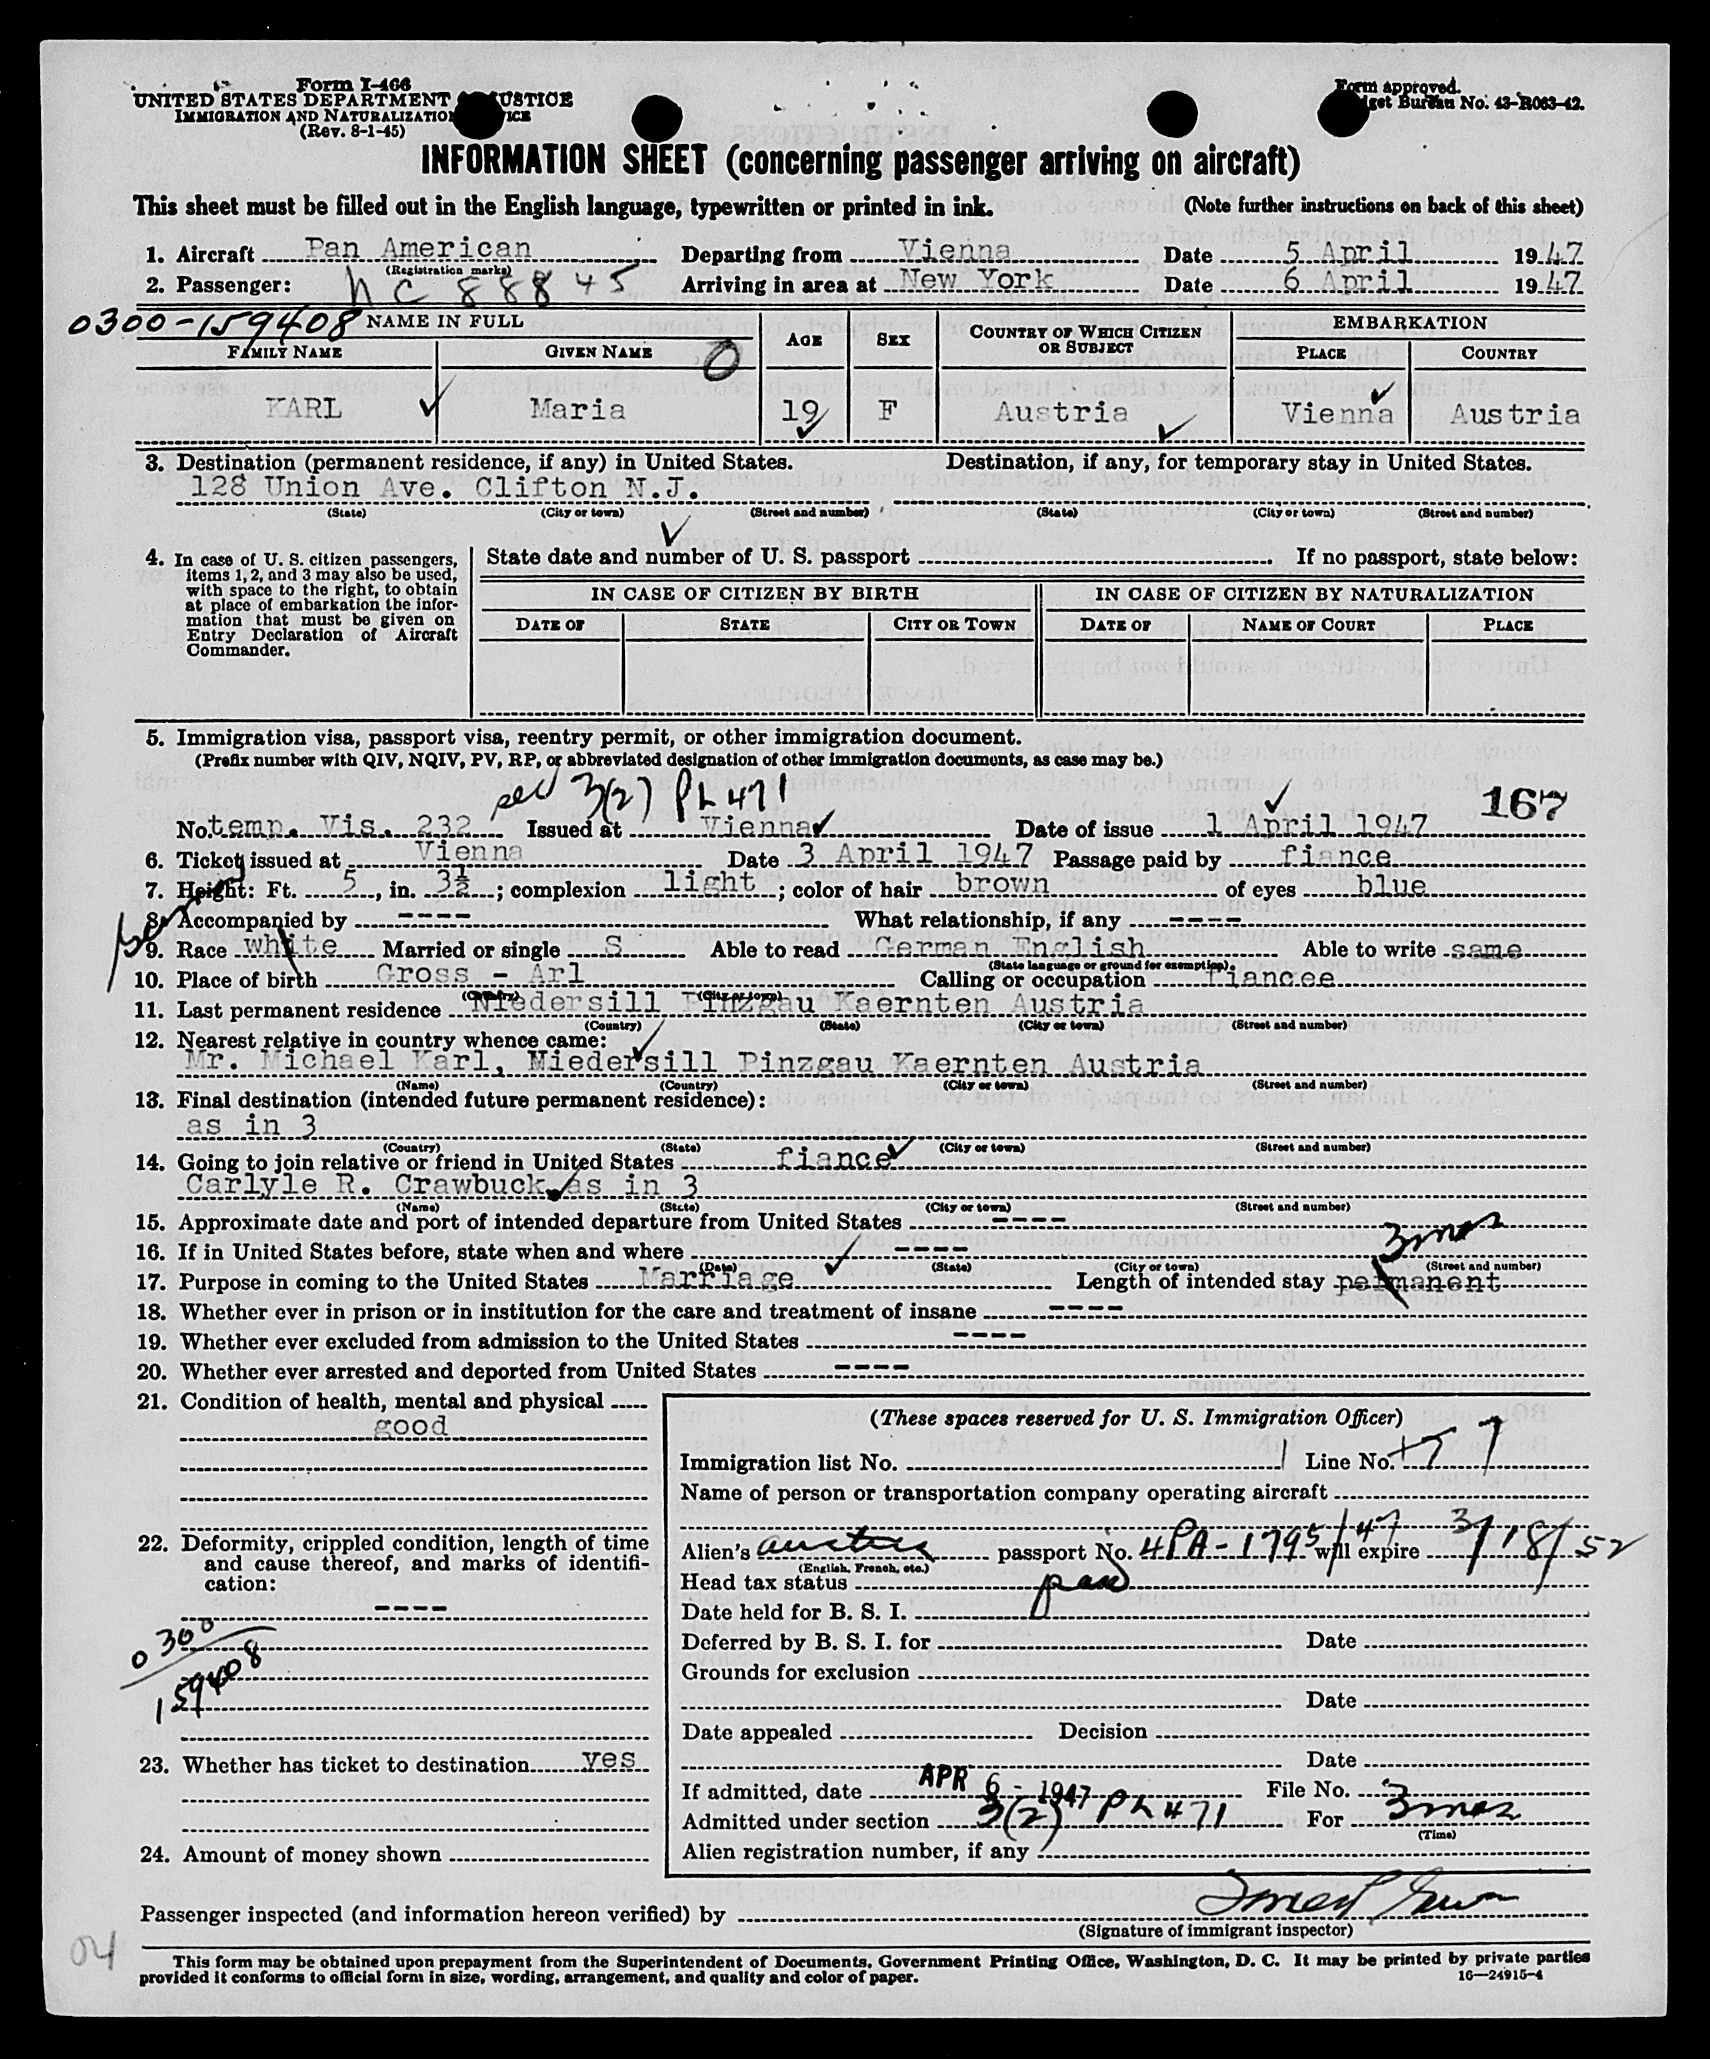 Form I-466
UNITED STATES DEPARTMENT OF JUSTICE
IMMIGRATION AND NATURALIZATION SERVICE
(Rev. 8-1-45)
Form approved.
Budget Bureau No. 43-R063-42.
INFORMATION SHEET (concerning passenger arriving on aircraft)
This sheet must be filled out in the English language, typewritten or printed in ink. (Note further instructions on back of this sheet)
1. Aircraft Pan American Departing from Vienna Date 5 April 1947
(Registration marks)
2. Passenger: NC 88845 Arriving in area at New York Date 6 April 1947
0300-159408 NAME IN FULL AGE SEX COUNTRY OF WHICH CITIZEN OR SUBJECT EMBARKATION
FAMILY NAME GIVEN NAME 0 PLACE COUNTRY
KARL Maria 19 F Austria Vienna Austria
3. Destination (permanent residence, if any) in United States. Destination, if any, for temporary stay in United States.
128 Union Ave. Clifton N.J.
(State) (City or town) (Street and number) (State) (City or town) (Street and number)
4. In case of U. S. citizen passengers, items 1, 2, and 3 may also be used, with space to the right, to obtain at place of embarkation the information that must be given on Entry Declaration of Aircraft Commander.
State date and number of U. S. passport If no passport, state below:
IN CASE OF CITIZEN BY BIRTH IN CASE OF CITIZEN BY NATURALIZATION
DATE OF STATE CITY OR TOWN DATE OF NAME OF COURT PLACE
5. Immigration visa, passport visa, reentry permit, or other immigration document.
(Prefix number with QIV, NQIV, PV, RP, or abbreviated designation of other immigration documents, as case may be.)
sec 3(2) PL 471 167
No. temp. Vis. 232 Issued at Vienna Date of issue 1 April 1947
6. Ticket issued at Vienna Date 3 April 1947 Passage paid by fiance
7. Height: Ft. 5, in. 3½; complexion light; color of hair brown of eyes blue
8. Accompanied by ---- What relationship, if any ----
9. Race white Married or single S Able to read German English Able to write same
(State language or ground for exemption)
10. Place of birth Gross - Arl Calling or occupation fiancee
(Country) (City or town)
11. Last permanent residence Niedersill Pinzgau Kaernten Austria
(Country) (State) (City or town) (Street and number)
12. Nearest relative in country whence came:
Mr. Michael Karl, Niedersill Pinzgau Kaernten Austria
(Name) (Country) (City or town) (Street and number)
13. Final destination (intended future permanent residence):
as in 3
(Country) (State) (City or town) (Street and number)
14. Going to join relative or friend in United States fiance
Carlyle R. Crawbuck as in 3
(Name) (State) (City or town) (Street and number)
15. Approximate date and port of intended departure from United States ----
16. If in United States before, state when and where ---- 3 mos
(Date) (State) (City or town) (Street and number)
17. Purpose in coming to the United States Marriage Length of intended stay permanent
18. Whether ever in prison or in institution for the care and treatment of insane ----
19. Whether ever excluded from admission to the United States ----
20. Whether ever arrested and deported from United States ----
21. Condition of health, mental and physical
good
22. Deformity, crippled condition, length of time and cause thereof, and marks of identification:
----
0300
159408
23. Whether has ticket to destination yes
24. Amount of money shown
(These spaces reserved for U. S. Immigration Officer)
Immigration list No. 1 Line No. 7
Name of person or transportation company operating aircraft
Alien's Austria passport No. 4PA-1795/47 will expire 3/18/52
(English, French, etc.)
Head tax status paid
Date held for B. S. I.
Deferred by B. S. I. for Date
Grounds for exclusion
Date
Date appealed Decision
Date
If admitted, date APR 6 - 1947 File No.
Admitted under section 3(2) PL 471 For 3 mos
(Time)
Alien registration number, if any
Passenger inspected (and information hereon verified) by
(Signature of immigrant inspector)
04
This form may be obtained upon prepayment from the Superintendent of Documents, Government Printing Office, Washington, D. C. It may be printed by private parties
provided it conforms to official form in size, wording, arrangement, and quality and color of paper. 16—24915-4